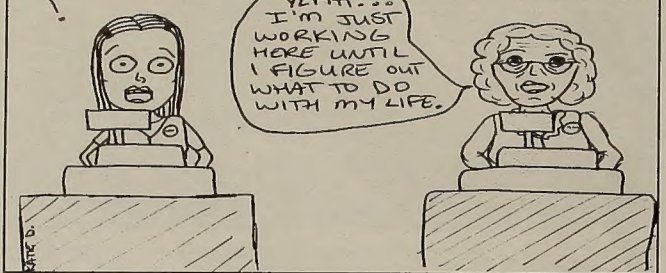 !
YEAH...
I'M JUST
WORKING
HERE UNTIL
I FIGURE OUT
WHAT TO DO
WITH MY LIFE.
KATIE D.